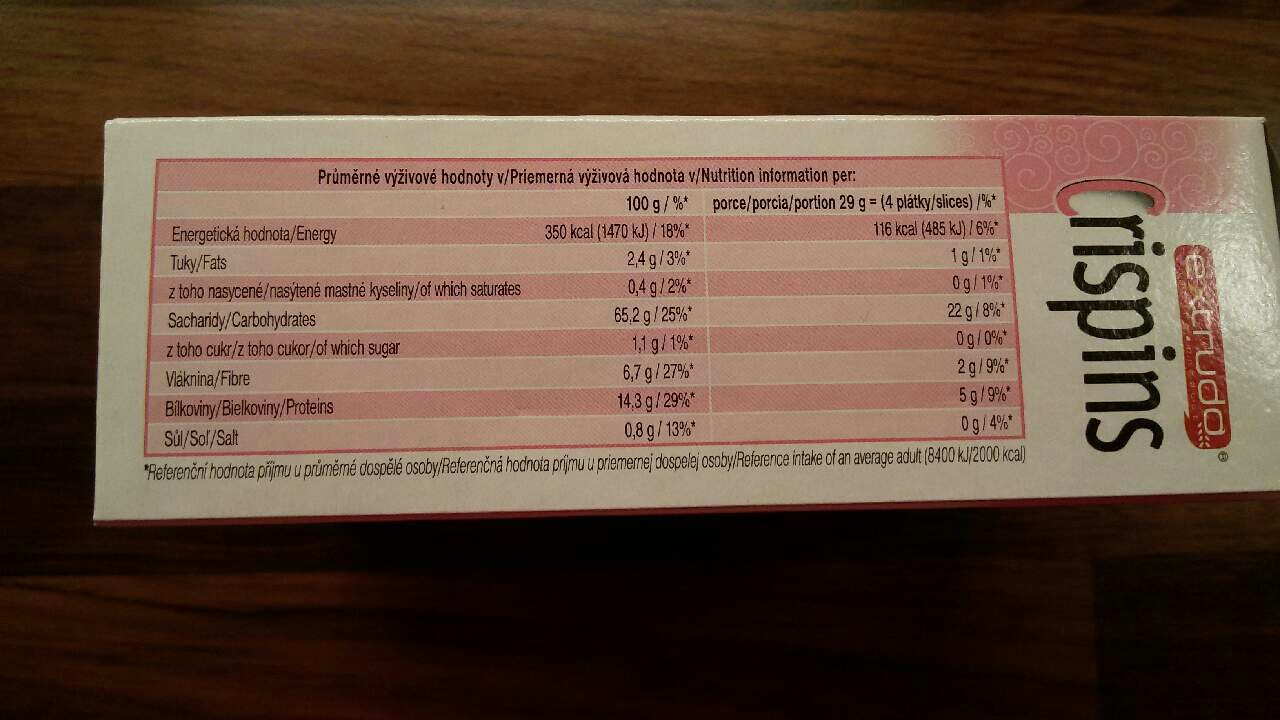 Průměrné výživové hodnoty v/Priemerná výživová hodnota v/Nutrition information per:
100 g / %* porce/porcia/portion 29 g = (4 plátky/slices) /%*
Energetická hodnota/Energy 350 kcal (1470 kJ) / 18%* 116 kcal (485 kJ) / 6%*
Tuky/Fats 2,4 g / 3%* 1 g / 1%*
z toho nasycené/nasýtené mastné kyseliny/of which saturates 0,4 g / 2%* 0 g / 1%*
Sacharidy/Carbohydrates 65,2 g / 25%* 22 g / 8%*
z toho cukr/z toho cukor/of which sugar 1,1 g / 1%* 0 g / 0%*
Vláknina/Fibre 6,7 g / 27%* 2 g / 9%*
Bílkoviny/Bielkoviny/Proteins 14,3 g / 29%* 5 g / 9%*
Sůl/Soľ/Salt 0,8 g / 13%* 0 g / 4%*
*Referenční hodnota příjmu u průměrné dospělé osoby/Referenčná hodnota príjmu u priemernej dospelej osoby/Reference intake of an average adult (8400 kJ/2000 kcal)
Crispins
extrudo
®